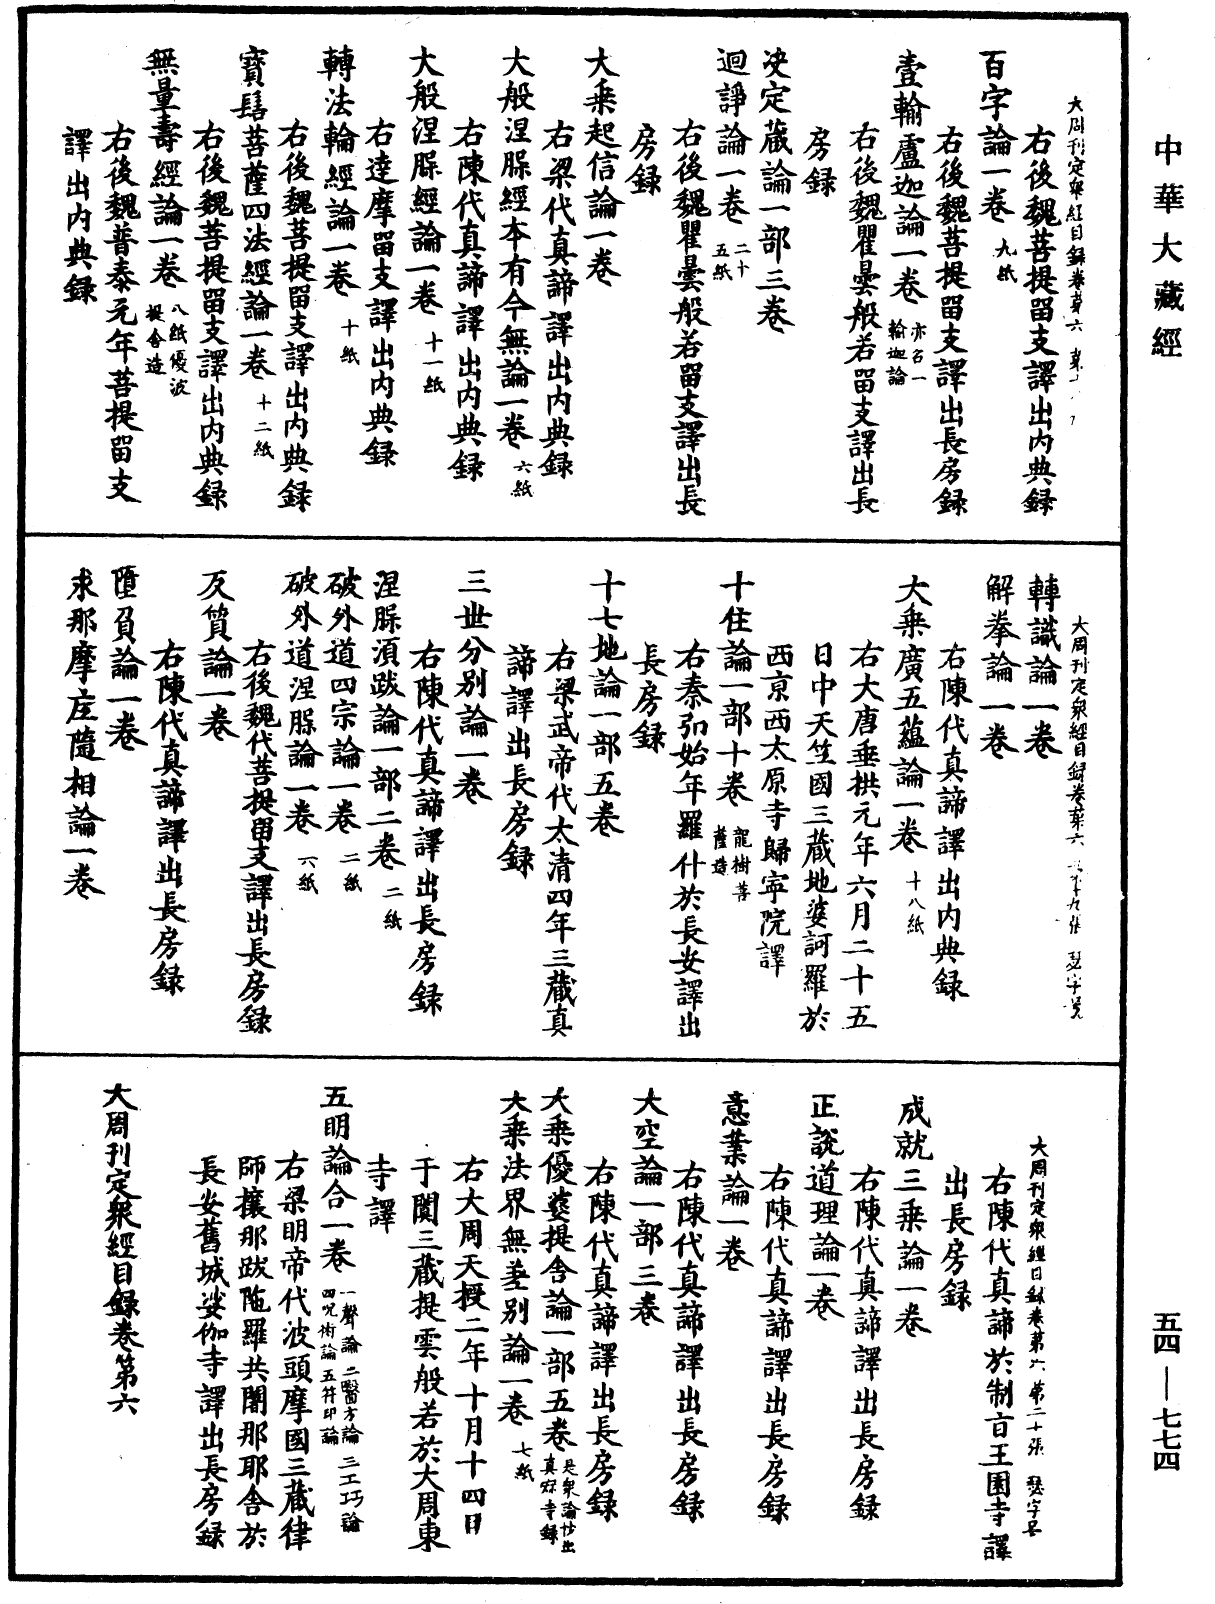 中華大藏經
大周刊定眾經目錄卷第六
右後魏菩提留支譯出內典錄
百字論一卷 九紙
右後魏菩提留支譯出長房錄
壹輸盧迦論一卷 亦名一輸迦論
右後魏瞿曇般若留支譯出長
房錄
決定藏論一部三卷
迴諍論一卷 二十五紙
右後魏瞿曇般若留支譯出長
房錄
大乘起信論一卷
右梁代真諦譯出內典錄
大般涅槃經本有今無論一卷 六紙
右陳代真諦譯出內典錄
大般涅槃經論一卷 十一紙
右達摩留支譯出內典錄
轉法輪經論一卷 十紙
右後魏菩提留支譯出內典錄
寶髻菩薩四法經論一卷 十二紙
右後魏菩提留支譯出內典錄
無量壽經論一卷 八紙優波提舍造
右後魏普泰元年菩提留支
譯出內典錄
大周刊定眾經目錄卷第六 第十九張 瑟字號
轉識論一卷
解拳論一卷
右陳代真諦譯出內典錄
大乘廣五蘊論一卷 十八紙
右大唐垂拱元年六月二十五
日中天竺國三藏地婆訶羅於
西京西太原寺歸寧院譯
十住論一部十卷 龍樹菩薩造
右秦弘始年羅什於長安譯出
長房錄
十七地論一部五卷
右梁武帝代太清四年三藏真
諦譯出長房錄
三世分別論一卷
右陳代真諦譯出長房錄
涅槃須跋論一部二卷 二紙
破外道四宗論一卷 二紙
破外道涅槃論一卷 六紙
右後魏代菩提留支譯出長房錄
反質論一卷
右陳代真諦譯出長房錄
墮負論一卷
求那摩底隨相論一卷
大周刊定眾經目錄卷第六 第二十張 瑟字号
右陳代真諦於制旨王園寺譯
出長房錄
成就三乘論一卷
右陳代真諦譯出長房錄
正說道理論一卷
右陳代真諦譯出長房錄
意業論一卷
右陳代真諦譯出長房錄
大空論一部三卷
右陳代真諦譯出長房錄
大乘優婆提舍論一部五卷 是眾論抄出真寂寺錄
大乘法界無差別論一卷 七紙
右大周天授二年十月十四日
于闐三藏提雲般若於大周東
寺譯
五明論合一卷 一聲論 二醫方論 三工巧論 四呪術論 五符印論
右梁明帝代波頭摩國三藏律
師攘那跋陁羅共闍那耶舍於
長安舊城娑伽寺譯出長房錄
大周刊定眾經目錄卷第六
五四—七七四